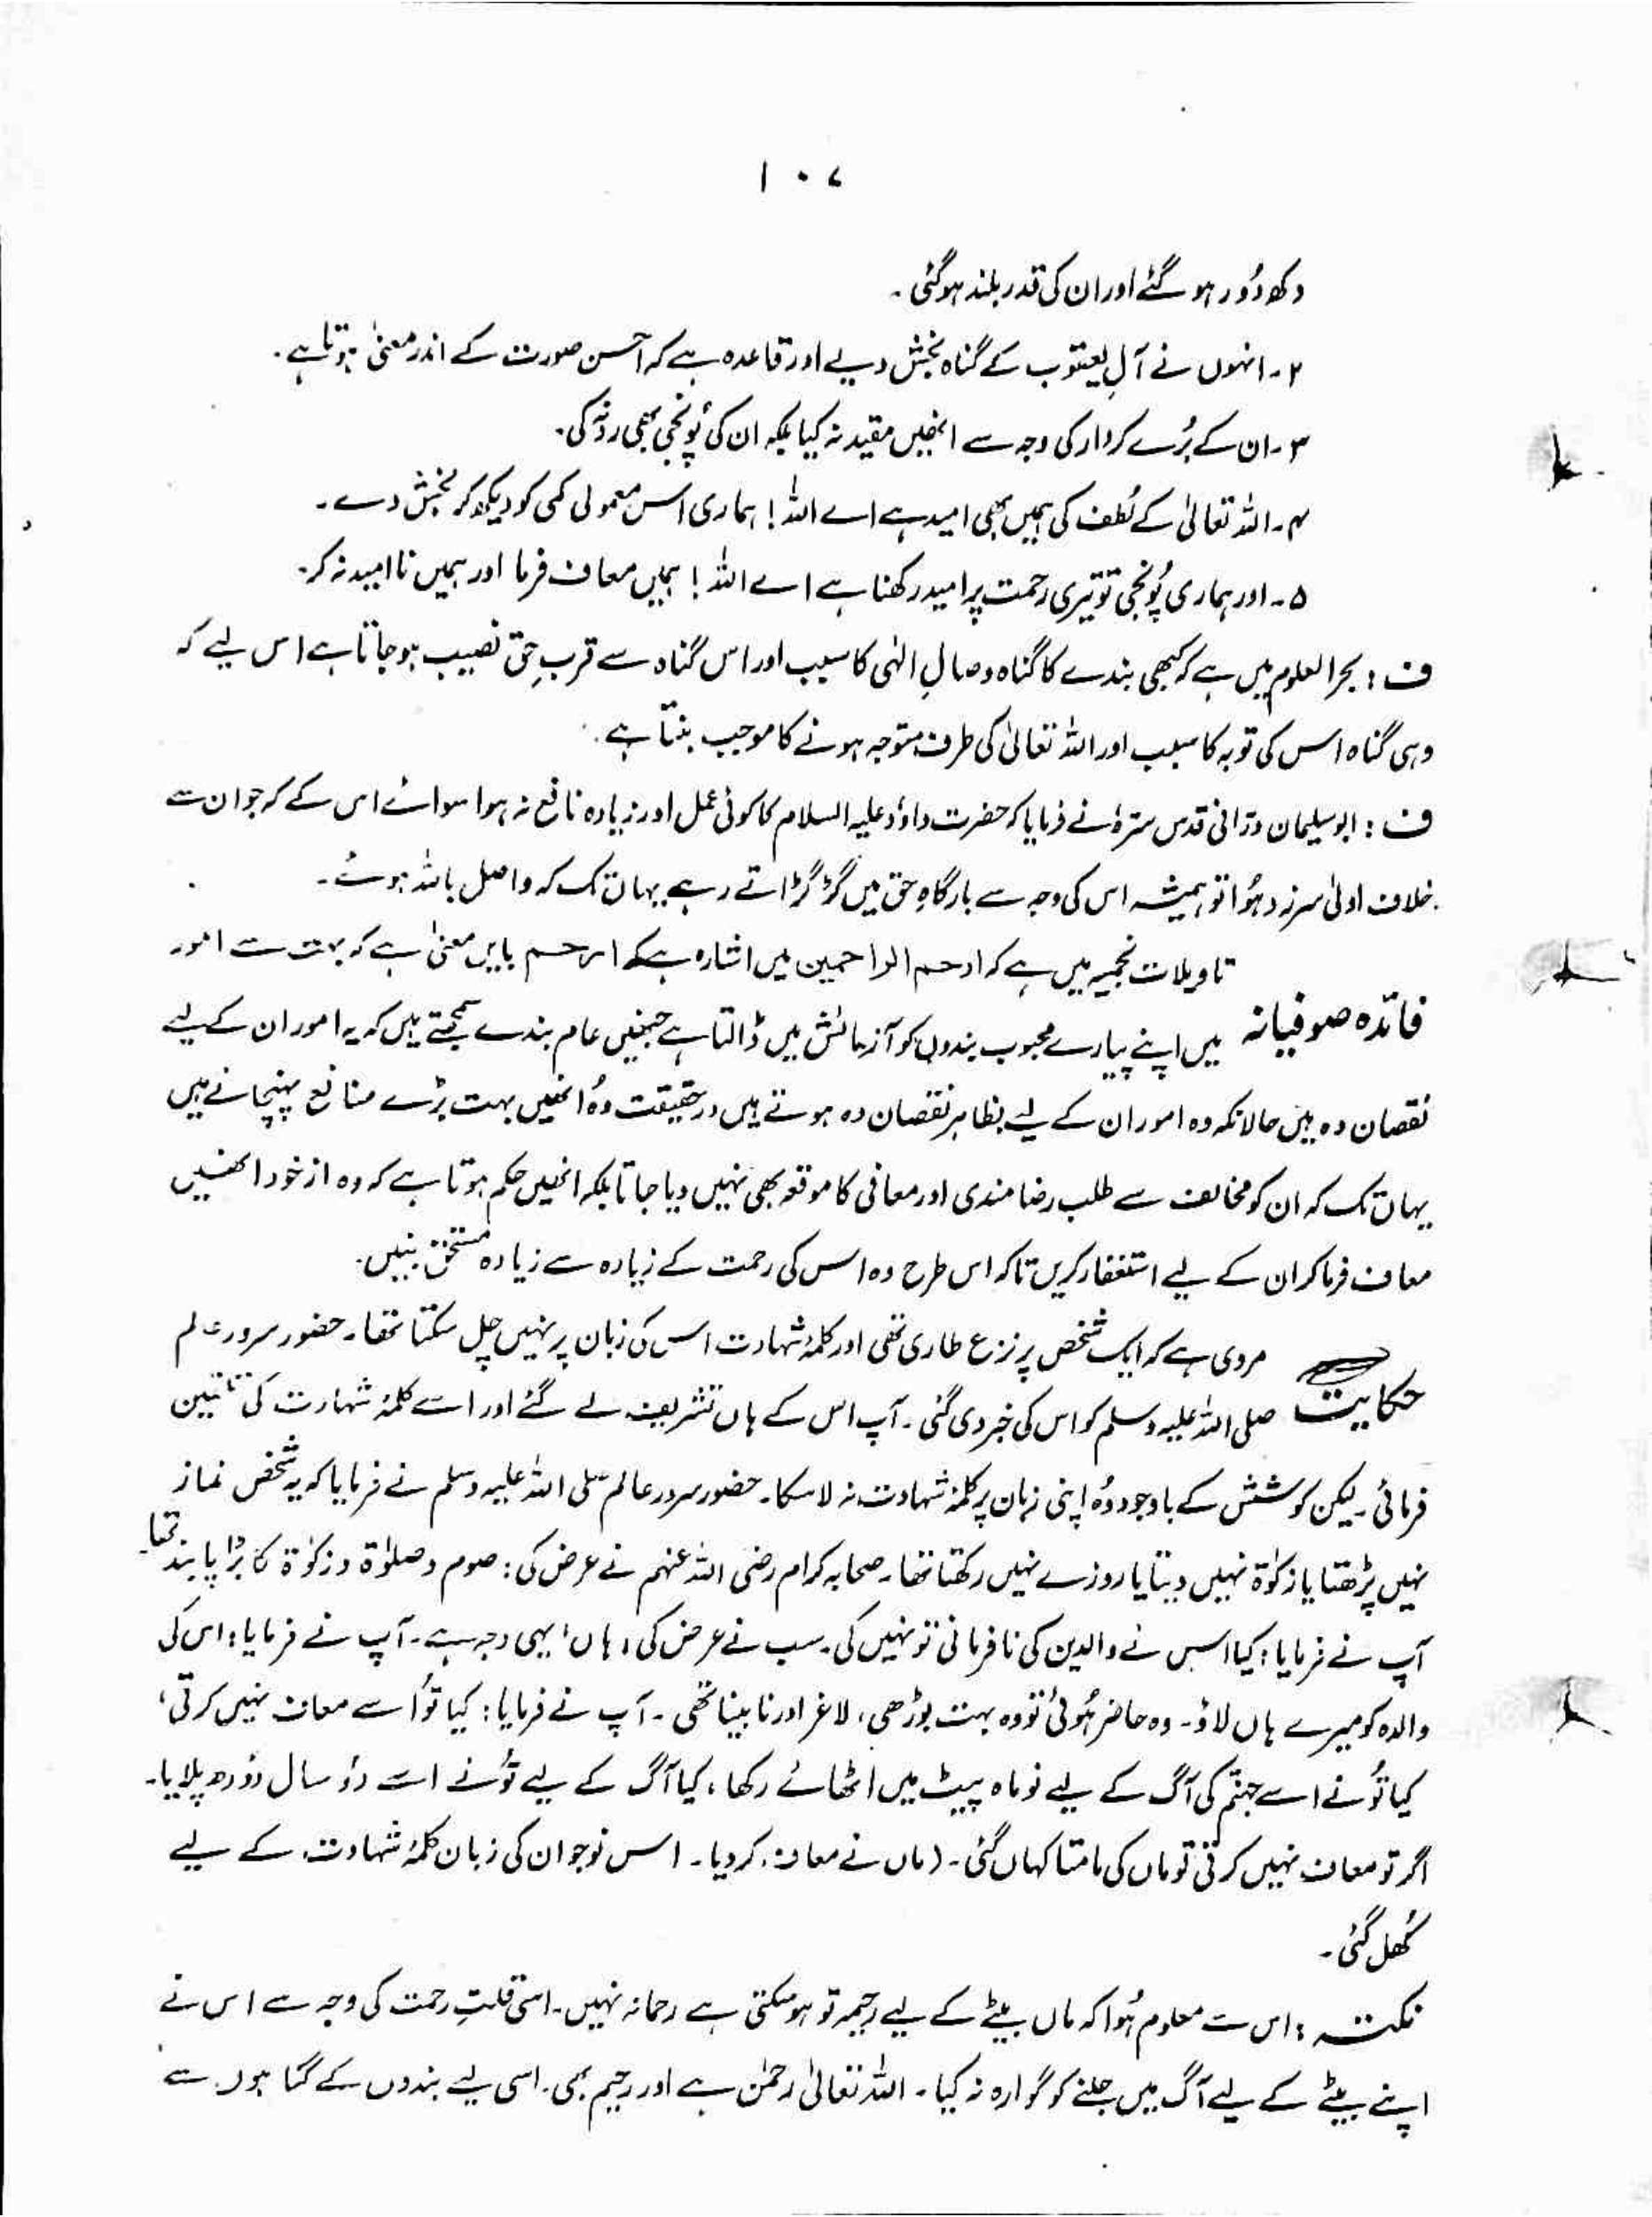 ۱۰۷
دکھ دُور ہو گئے اور ان کی قدر بلند ہوگئی۔
۲۔ انہوں نے آلِ یعقوب کے گناہ بخش دیے اور قاعدہ ہے کہ احسن صورت کے اندر معنیٰ ہوتا ہے۔
۳۔ ان کے بُرے کردار کی وجہ سے انھیں مقید نہ کیا بلکہ ان کی پُونجی بھی رد نہ کی۔
۴۔ اللہ تعالیٰ کے لُطف کی ہمیں بھی امید ہے اے اللہ! ہماری اس معمولی کمی کو دیکھ کر بخش دے۔
۵۔ اور ہماری پُونجی تو تیری رحمت پر امید رکھنا ہے اے اللہ! ہمیں معاف فرما اور ہمیں ناامید نہ کر۔
ف: بحرالعلوم میں ہے کہ کبھی بندے کا گناہ وصالِ الٰہی کا سبب اور اس گناہ سے قربِ حق نصیب ہو جاتا ہے اس لیے کہ
وہی گناہ اس کی توبہ کا سبب اور اللہ تعالیٰ کی طرف متوجہ ہونے کا موجب بنتا ہے۔
ف: ابوسلیمان درّانی قدس سرّہٗ نے فرمایا کہ حضرت داؤد علیہ السلام کا کوئی عمل اور زیادہ نافع نہ ہوا سوائے اس کے کہ جو ان سے
خلاف اولیٰ سرزد ہُوا تو ہمیشہ اس کی وجہ سے بارگاہِ حق میں گڑگڑاتے رہے یہاں تک کہ واصل باللہ ہوئے۔
تاویلات نجمیہ میں ہے کہ ارحم الراحمین میں اشارہ ہے کہ ارحم بایں معنیٰ ہے کہ بہت سے امور
فائدہ صوفیانہ میں اپنے پیارے محبوب بندوں کو آزمائش میں ڈالتا ہے جنھیں عام بندے سمجھتے ہیں کہ یہ امور ان کے لیے
نقصان دہ ہیں حالانکہ وہ امور ان کے لیے بظاہر نقصان دہ ہوتے ہیں درحقیقت وُہ انھیں بہت بڑے منافع پہنچاتے ہیں
یہاں تک کہ ان کو مخالف سے طلب رضامندی اور معافی کا موقعہ بھی نہیں دیا جاتا بلکہ انھیں حکم ہوتا ہے کہ وہ از خود انھیں
معاف فرما کر ان کے لیے استغفار کریں تاکہ اس طرح وہ اس کی رحمت کے زیادہ سے زیادہ مستحق بنیں۔
مروی ہے کہ ایک شخص پر نزع طاری تھی اور کلمۂ شہادت اس کی زبان پر نہیں چل سکتا تھا۔ حضور سرور عالم
حکایت صلی اللہ علیہ وسلم کو اس کی خبر دی گئی۔ آپ اس کے ہاں تشریف لے گئے اور اسے کلمۂ شہادت کی تلقین
فرمائی۔ لیکن کوشش کے باوجود وُہ اپنی زبان پر کلمۂ شہادت نہ لا سکا۔ حضور سرور عالم صلی اللہ علیہ وسلم نے فرمایا کہ یہ شخص نماز
نہیں پڑھتا یا زکوٰۃ نہیں دیتا یا روزے نہیں رکھتا تھا۔ صحابہ کرام رضی اللہ عنہم نے عرض کی: صوم و صلوٰۃ و زکوٰۃ کا بڑا پابند تھا۔
آپ نے فرمایا: کیا اس نے والدین کی نافرمانی تو نہیں کی۔ سب نے عرض کی: ہاں، یہی وجہ ہے۔ آپ نے فرمایا: اس کی
والدہ کو میرے ہاں لاؤ۔ وہ حاضر ہُوئی تو وہ بہت بوڑھی، لاغر اور نابینا تھی۔ آپ نے فرمایا: کیا تُو اسے معاف نہیں کرتی،
کیا تُو نے اسے جہنّم کی آگ کے لیے نو ماہ پیٹ میں اٹھائے رکھا، کیا آگ کے لیے تُو نے اسے دو سال دُودھ پلایا۔
اگر تو معاف نہیں کرتی تو ماں کی مامتا کہاں گئی۔ (ماں نے معاف کر دیا۔ اس نوجوان کی زبان کلمۂ شہادت کے لیے
کُھل گئی۔
نکتہ: اس سے معلوم ہُوا کہ ماں بیٹے کے لیے رحیمہ تو ہو سکتی ہے رحمانہ نہیں۔ اسی قلتِ رحمت کی وجہ سے اس نے
اپنے بیٹے کے لیے آگ میں جلنے کو گوارہ نہ کیا۔ اللہ تعالیٰ رحمٰن ہے اور رحیم بھی۔ اسی لیے بندوں کے گناہوں سے